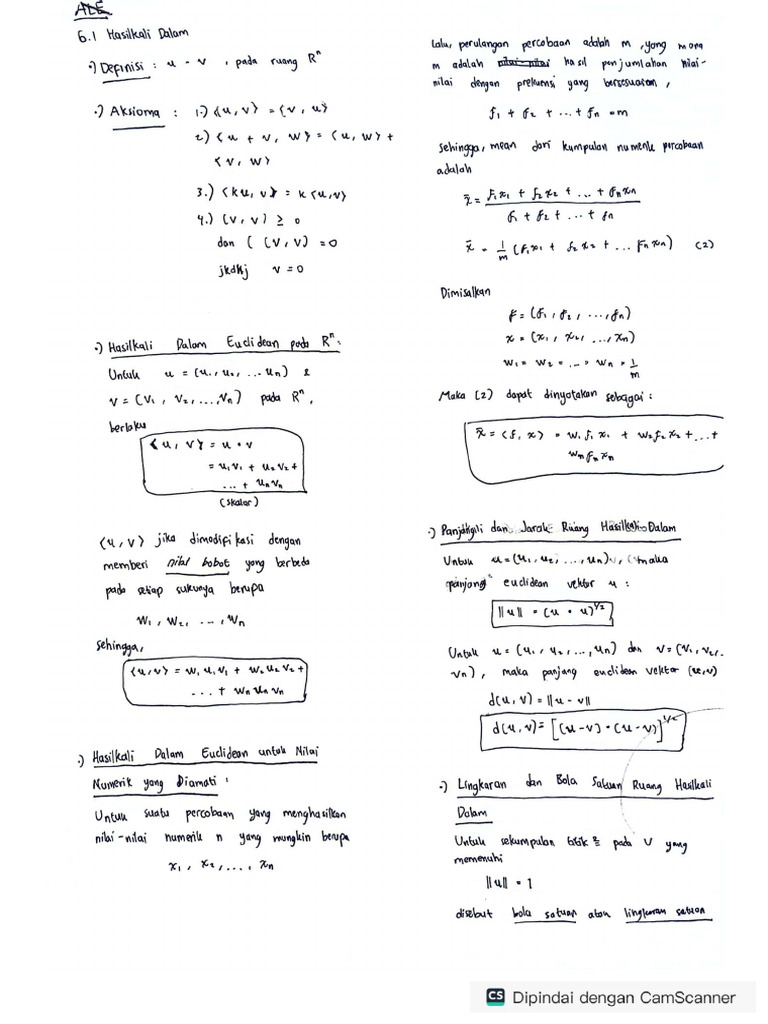 6.1 Hasilkali Dalam
•) Definisi : u - v , pada ruang Rⁿ
•) Aksioma : 1.) ⟨u, v⟩ = ⟨v, u⟩
2.) ⟨u + v, w⟩ = ⟨u, w⟩ +
⟨v, w⟩
3.) ⟨ku, v⟩ = k ⟨u, v⟩
4.) ⟨v, v⟩ ≥ 0
dan ( ⟨v, v⟩ = 0
jkdkj v = 0
•) Hasilkali Dalam Euclidean pada Rⁿ :
Untuk u = (u₁, u₂, ... uₙ) &
v = (v₁, v₂, ..., vₙ) pada Rⁿ,
berlaku
⟨u, v⟩ = u • v
= u₁v₁ + u₂v₂ +
... + uₙvₙ
(skalar)
⟨u, v⟩ jika dimodifikasi dengan
memberi nilai bobot yang berbeda
pada setiap sukunya berupa
w₁, w₂, ..., wₙ
Sehingga,
⟨u, v⟩ = w₁u₁v₁ + w₂u₂v₂ +
... + wₙuₙvₙ
•) Hasilkali Dalam Euclidean untuk Nilai
Numerik yang Diamati :
Untuk suatu percobaan yang menghasilkan
nilai-nilai numerik n yang mungkin berupa
x₁, x₂, ..., xₙ
Lalu, perulangan percobaan adalah m, yang mana
m adalah hasil penjumlahan nilai-
nilai dengan prekuensi yang bersesuaian,
f₁ + f₂ + ... + fₙ = m
Sehingga, mean dari kumpulan numerik percobaan
adalah
x̄ = (f₁x₁ + f₂x₂ + ... + fₙxₙ) / (f₁ + f₂ + ... + fₙ)
x̄ = 1/m (f₁x₁ + f₂x₂ + ... fₙxₙ) (2)
Dimisalkan
f = (f₁, f₂, ..., fₙ)
x = (x₁, x₂, ..., xₙ)
w₁ = w₂ = ... = wₙ = 1/m
Maka (2) dapat dinyatakan sebagai :
x̄ = ⟨f, x⟩ = w₁f₁x₁ + w₂f₂x₂ + ... +
wₙfₙxₙ
•) Panjang dan Jarak Ruang Hasilkali Dalam
Untuk u = (u₁, u₂, ..., uₙ), maka
panjang euclidean vektor u :
||u|| = (u • u)^1/2
Untuk u = (u₁, u₂, ..., uₙ) dan v = (v₁, v₂, ...
vₙ), maka panjang euclidean vektor (u,v)
d(u, v) = ||u - v||
d(u, v) = [(u - v) • (u - v)]^1/2
•) Lingkaran dan Bola Satuan Ruang Hasilkali
Dalam
Untuk sekumpulan titik² pada V yang
memenuhi
||u|| = 1
disebut bola satuan atau lingkaran satuan
CS Dipindai dengan CamScanner